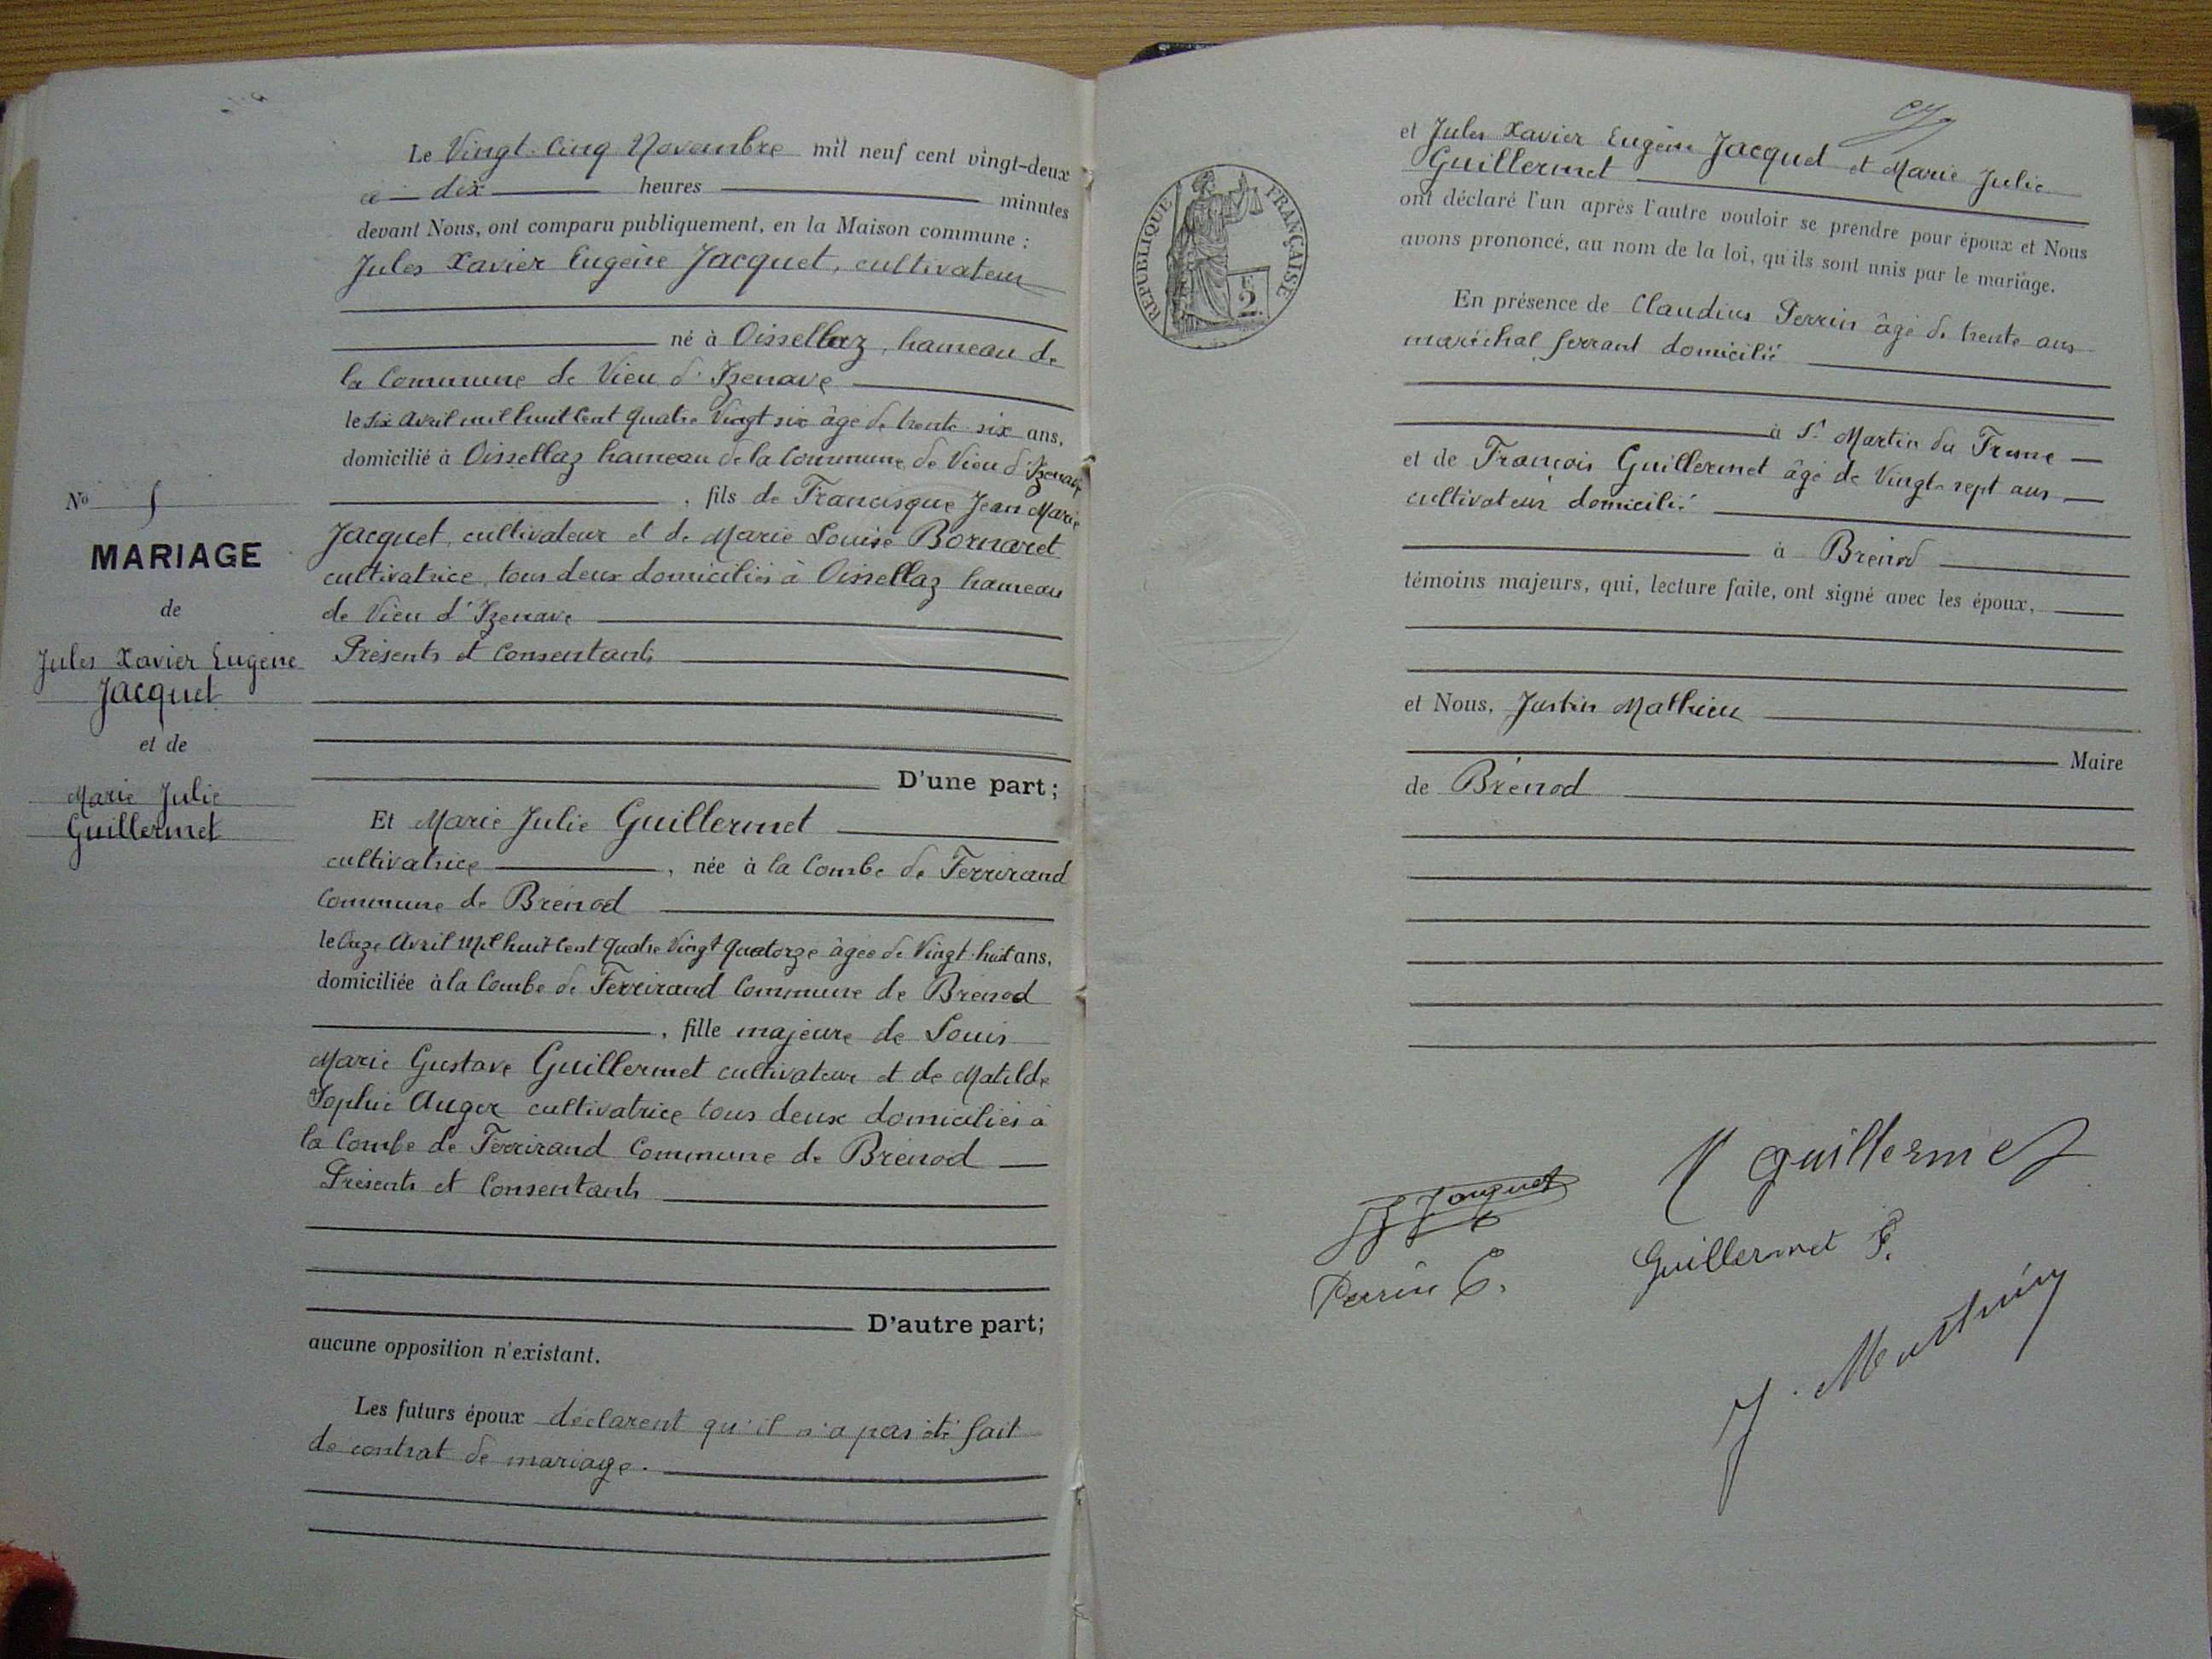 Le Vingt-Cinq Novembre mil neuf cent vingt-deux
à dix heures minutes
devant Nous, ont comparu publiquement, en la Maison commune :
Jules Xavier Eugène Jacquet, cultivateur
né à Oissellaz, hameau de
la Commune de Vieu d'Izenave
le Six Avril mil huit Cent Quatre Vingt six âgé de trente-six ans,
domicilié à Oissellaz hameau de la Commune de Vieu d'Izenave
, fils de Francisque Jean Marie
Jacquet, cultivateur et de Marie Louise Bornaret
cultivatrice, tous deux domiciliés à Oissellaz hameau
de Vieu d'Izenave
Présents et Consentants
D'une part;
Et Marie Julie Guillermet
cultivatrice, née à la Combe de Ferrirand
Commune de Brénod
le Onze Avril Mil huit Cent Quatre Vingt Quatorze âgée de Vingt-huit ans,
domiciliée à la Combe de Ferrirand Commune de Brénod
, fille majeure de Louis
Marie Gustave Guillermet cultivateur et de Matilde
Sophie Auger cultivatrice tous deux domiciliés à
la Combe de Ferrirand Commune de Brénod
Présents et Consentants
D'autre part;
aucune opposition n'existant.
Les futurs époux déclarent qu'il n'a pas été fait
de contrat de mariage.
No
MARIAGE
de
Jules Xavier Eugène
Jacquet
et de
Marie Julie
Guillermet
RÉPUBLIQUE FRANÇAISE
2
et Jules Xavier Eugène Jacquet et Marie Julie
Guillermet
ont déclaré l'un après l'autre vouloir se prendre pour époux et Nous
avons prononcé, au nom de la loi, qu'ils sont unis par le mariage.
En présence de Claudius Perrin âgé de trente ans
maréchal ferrant domicilié
à St Martin du Fresne
et de François Guillermet âgé de Vingt-sept ans
cultivateur domicilié
à Brénod
témoins majeurs, qui, lecture faite, ont signé avec les époux,
et Nous, Justin Mathieu
Maire
de Brénod
M Guillermet
J Jacquet
Guillermet F.
Perrin C.
J. Mathieu